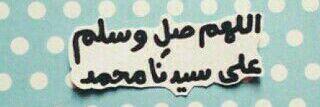 اللهم صلِ وسلم
على سيدنا محمد